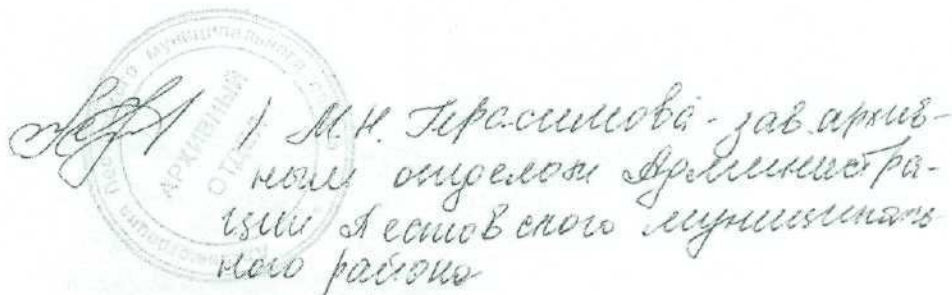 / М.Н. Герасимова - зав. архив-
ным отделом Администра-
ции Пестовского муниципаль-
ного района
муниципального
АРХИВНЫЙ
ОТДЕЛ